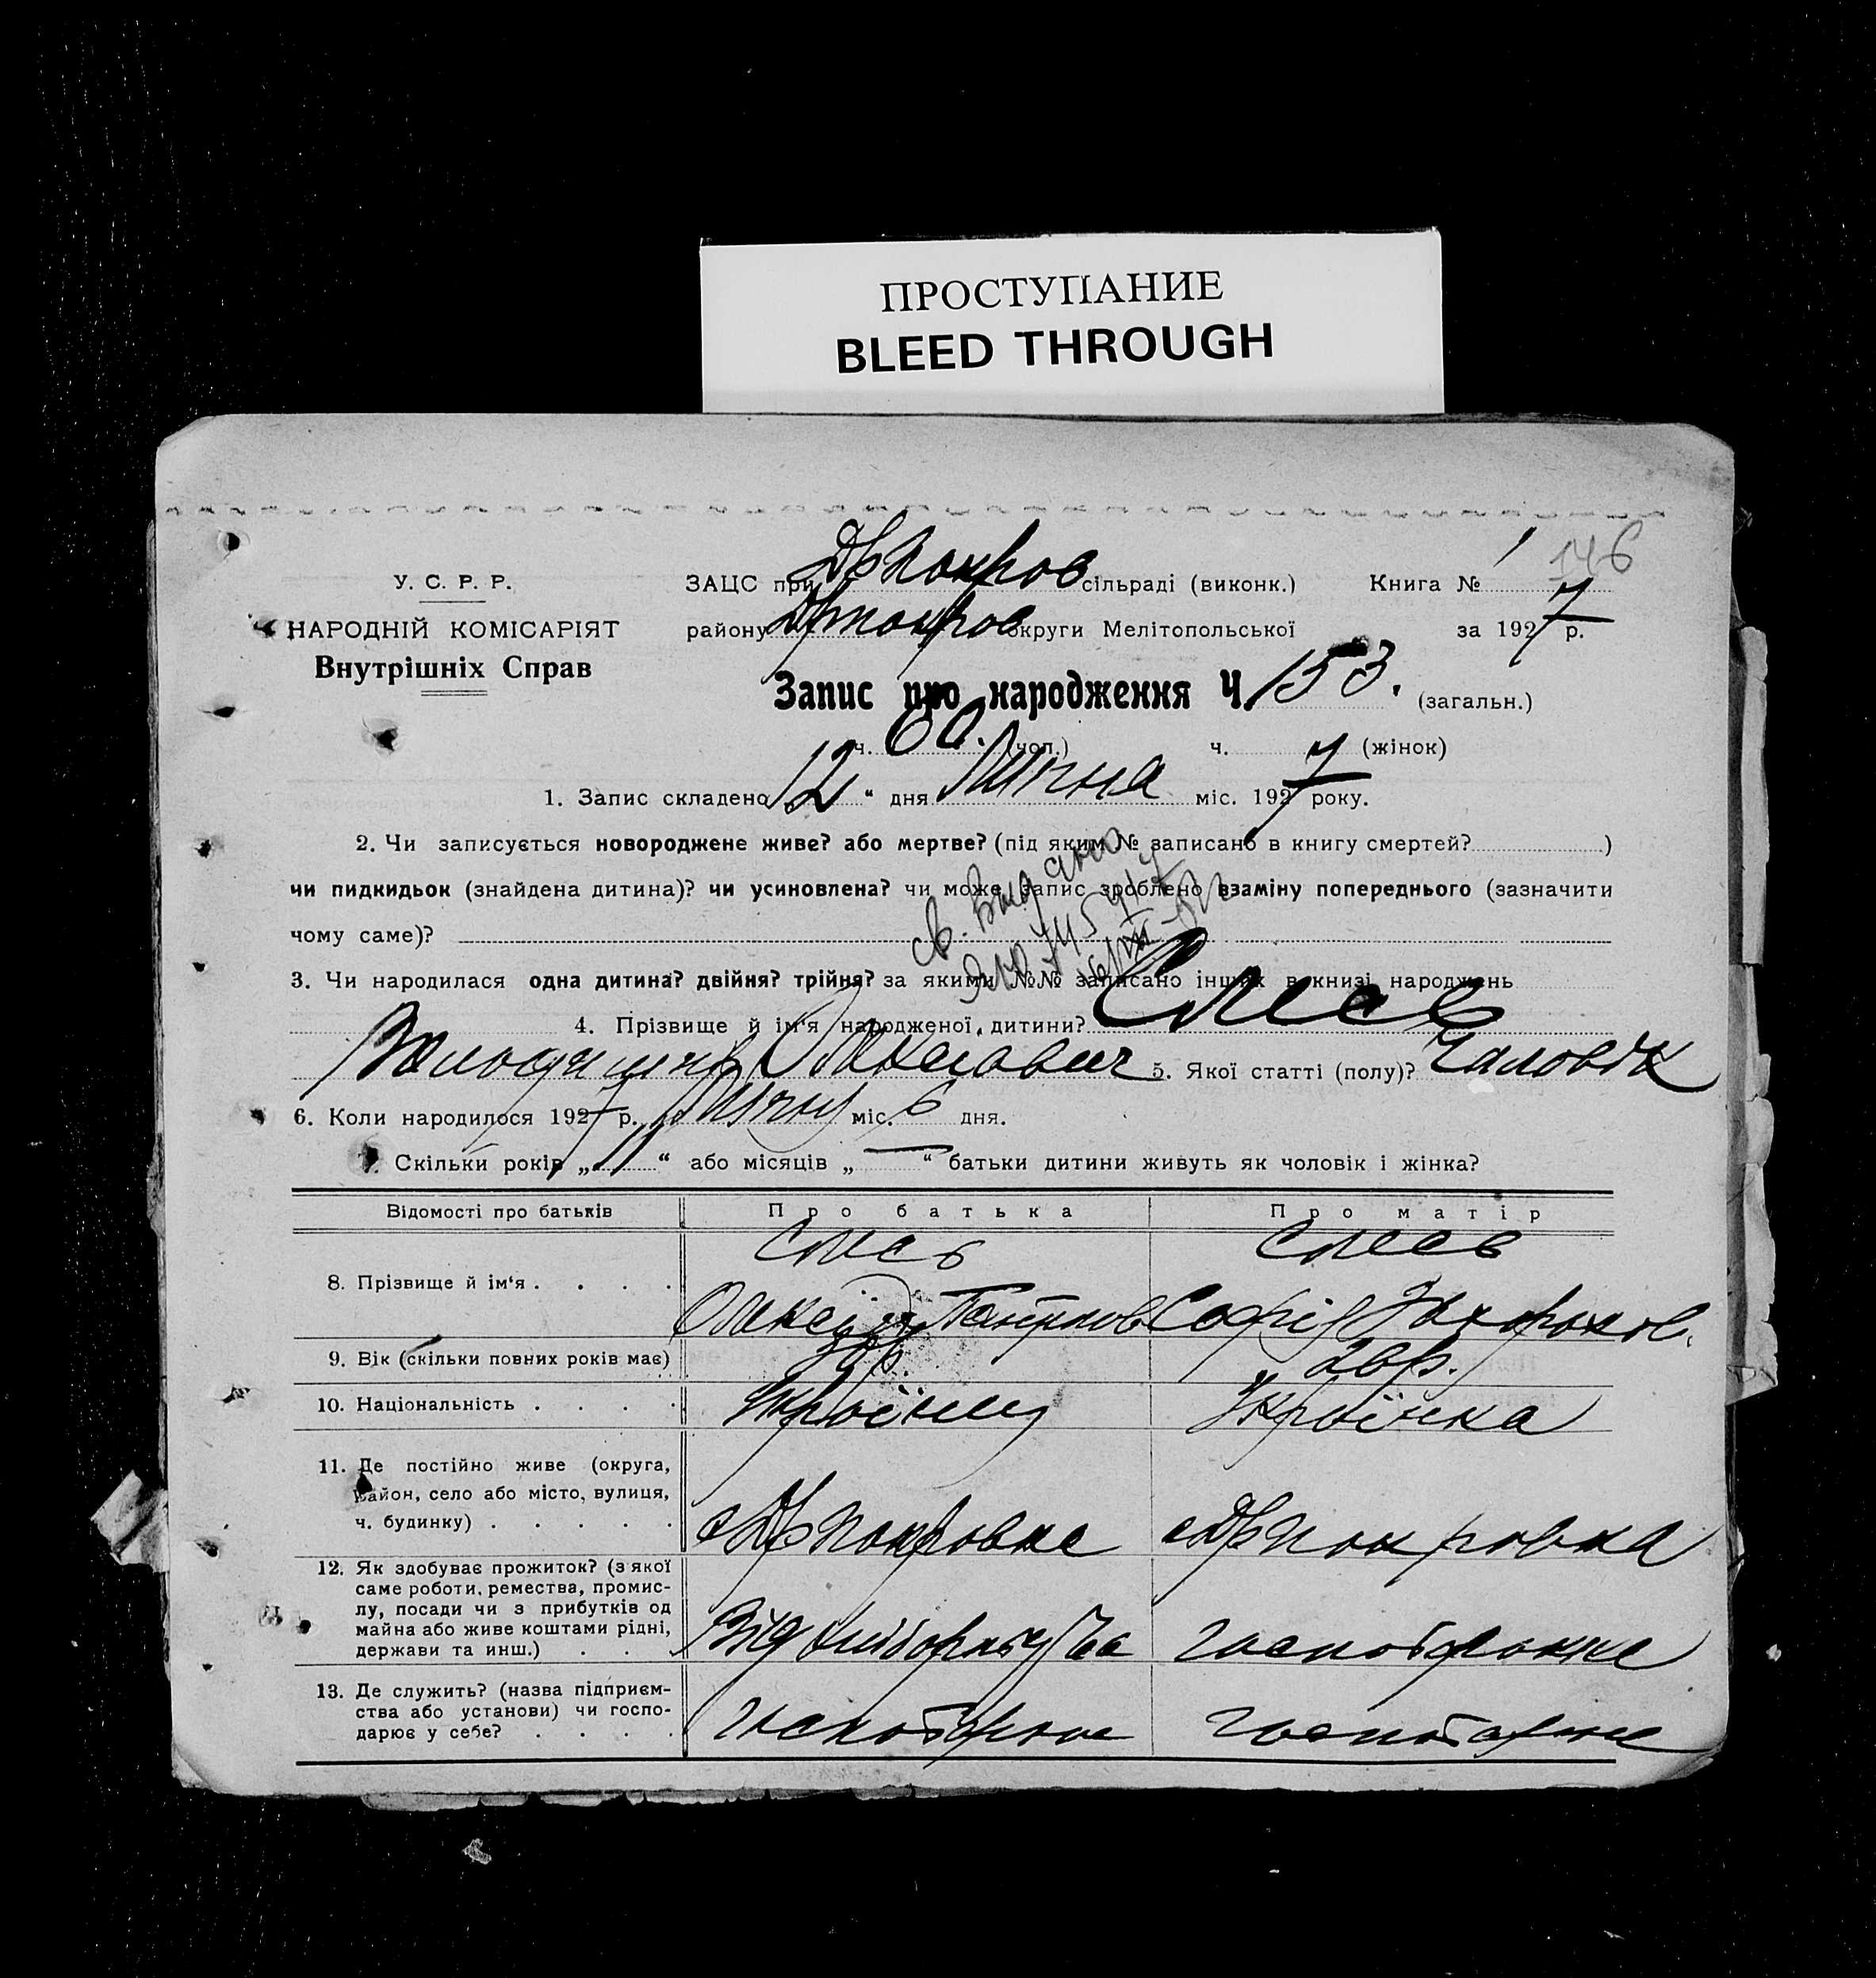 ПРОСТУПАНИЕ
BLEED THROUGH
146
У. С. Р. Р.
НАРОДНІЙ КОМІСАРІЯТ
Внутрішніх Справ
ЗАЦС при Др Покров сільраді (виконк.) Книга № 1
району округи Мелітопольської за 1927 р.
Запис про народження Ч. 153. (загальн.)
ч. 60. (чол.) ч. (жінок)
1. Запис складено „12“ дня Липня міс. 1927 року.
2. Чи записується новороджене живе? або мертве? (під яким № записано в книгу смертей? )
чи пидкидьок (знайдена дитина)? чи усиновлена? чи може запис зроблено взаміну попереднього (зазначити
чому саме)?
св. выдано
3. Чи народилася одна дитина? двійня? трійня? за якими №№ записано інших в книзі народжень
4. Прізвище й ім'я народженої дитини?
Володимир Олексієвич 5. Якої статті (полу)? Чаловік
6. Коли народилося 1927 р. міс. 6 дня.
7. Скільки років „11“ або місяців „—“ батьки дитини живуть як чоловік і жінка?
Відомості про батьків Про батька Про матір
8. Прізвище й ім'я . . . .
Олексій Софія
9. Вік (скільки повних років має)
10. Національність . . . . Українец Українка
11. Де постійно живе (округа,
район, село або місто, вулиця,
ч. будинку) . . . . . с Др Покровка с Др Покровка
12. Як здобуває прожиток? (з якої
саме роботи, ремества, промис-
лу, посади чи з прибутків од
майна або живе коштами рідні,
держави та инш.) . . . Від
13. Де служить? (назва підприєм-
ства або установи) чи госпо-
дарює у себе? . . . .